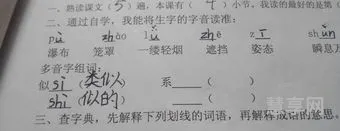 一、熟读课文(5)遍，本课有(4)小节，我读的最好的是第(
二、通过自学，我能将生字的字音读准：
pù zhào lǚ zhē zī shùn
瀑布 笼罩 一缕轻烟 遮挡 姿态 瞬息万
多音字组词：
似 sì (类似) 系 ( )
shì (似的) ( )
三、查字典，先解释下列划线的词语，再解释成语的意思。